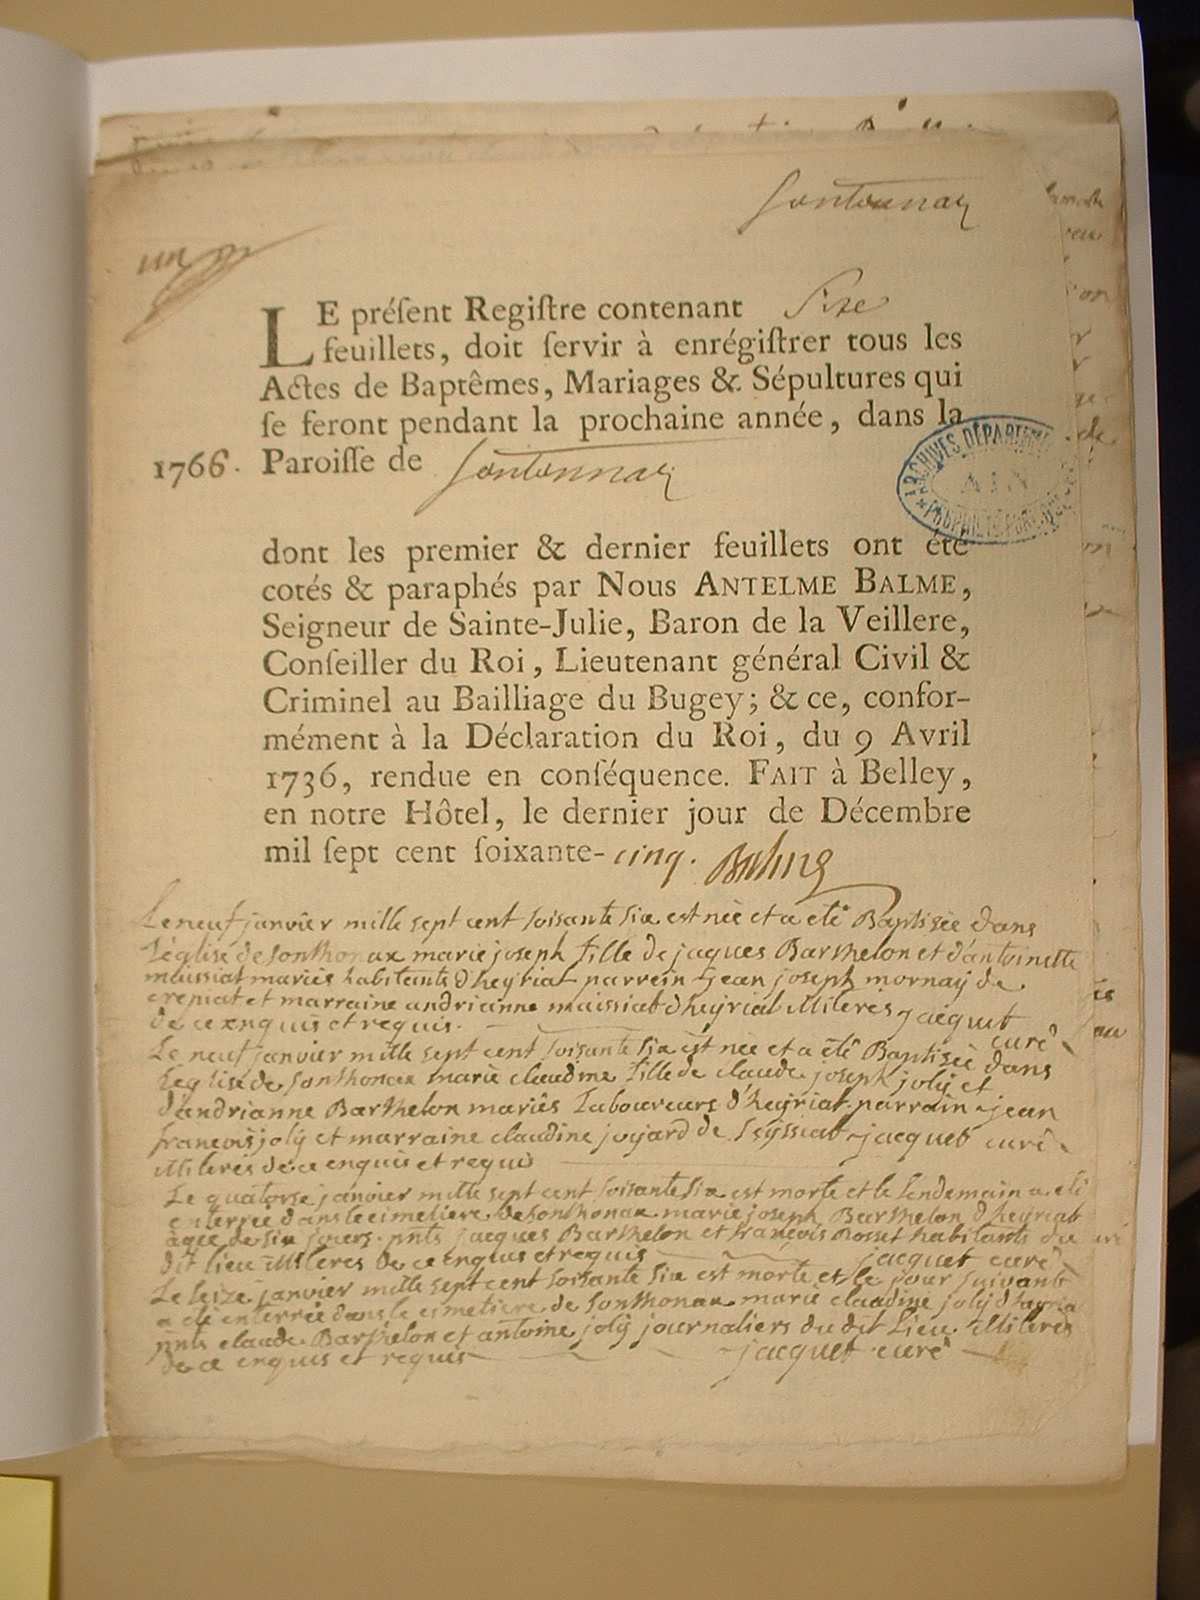 Sontonnax
un
LE préſent Regiſtre contenant Sixe
feuillets, doit ſervir à enrégiſtrer tous les
Actes de Baptêmes, Mariages & Sépultures qui
ſe feront pendant la prochaine année, dans la
1766. Paroiſſe de Sontonnax
ARCHIVES DÉPARTEM
AIN
dont les premier & dernier feuillets ont été
cotés & paraphés par Nous ANTELME BALME,
Seigneur de Sainte-Julie, Baron de la Veillere,
Conſeiller du Roi, Lieutenant général Civil &
Criminel au Bailliage du Bugey; & ce, confor-
mément à la Déclaration du Roi, du 9 Avril
1736, rendue en conſéquence. FAIT à Belley,
en notre Hôtel, le dernier jour de Décembre
mil ſept cent ſoixante-cinq. Balme
Le neuf janvier mille sept cent soisante six est née et a eté Baptisée dans
l'église de sonthonax marie joseph fille de jaques Barthelon et d'antoinette
maissiat mariés habitants d'heyriat parrein jean joseph mornay de
crepiat et marraine andrianne maissiat d'heyriat illiteres jacquet
de ce enquis et requis. curé
Le neuf janvier mille sept cent soisante six est née et a eté Baptisée dans
l'eglise de sonthonax marie claudine fille de claude joseph joly et
d'andrianne Barthelon mariés laboureurs d'heyriat parrain jean
francois joly et marraine claudine jujard de seyssiat jacquet curé
illiterés de ce enquis et requis
Le quatorse janvier mille sept cent soisante six est morte et le lendemain a eté
enterrée dans le cimetiere de sonthonax marie joseph Barthelon d'heyriat
agée de six jours. pnts jacques Barthelon et francois Rosset habitants du
dit lieu illiteres de ce enquis et requis jacquet curé
Le seize janvier mille sept cent soisante six est morte et le jour suivant
a eté enterrée dans le cimetiere de sonthonax marie claudine joly d'heyria
pnts claude Barthelon et antoine joly journaliers du dit Lieu illiteres
de ce enquis et requis jacquet curé